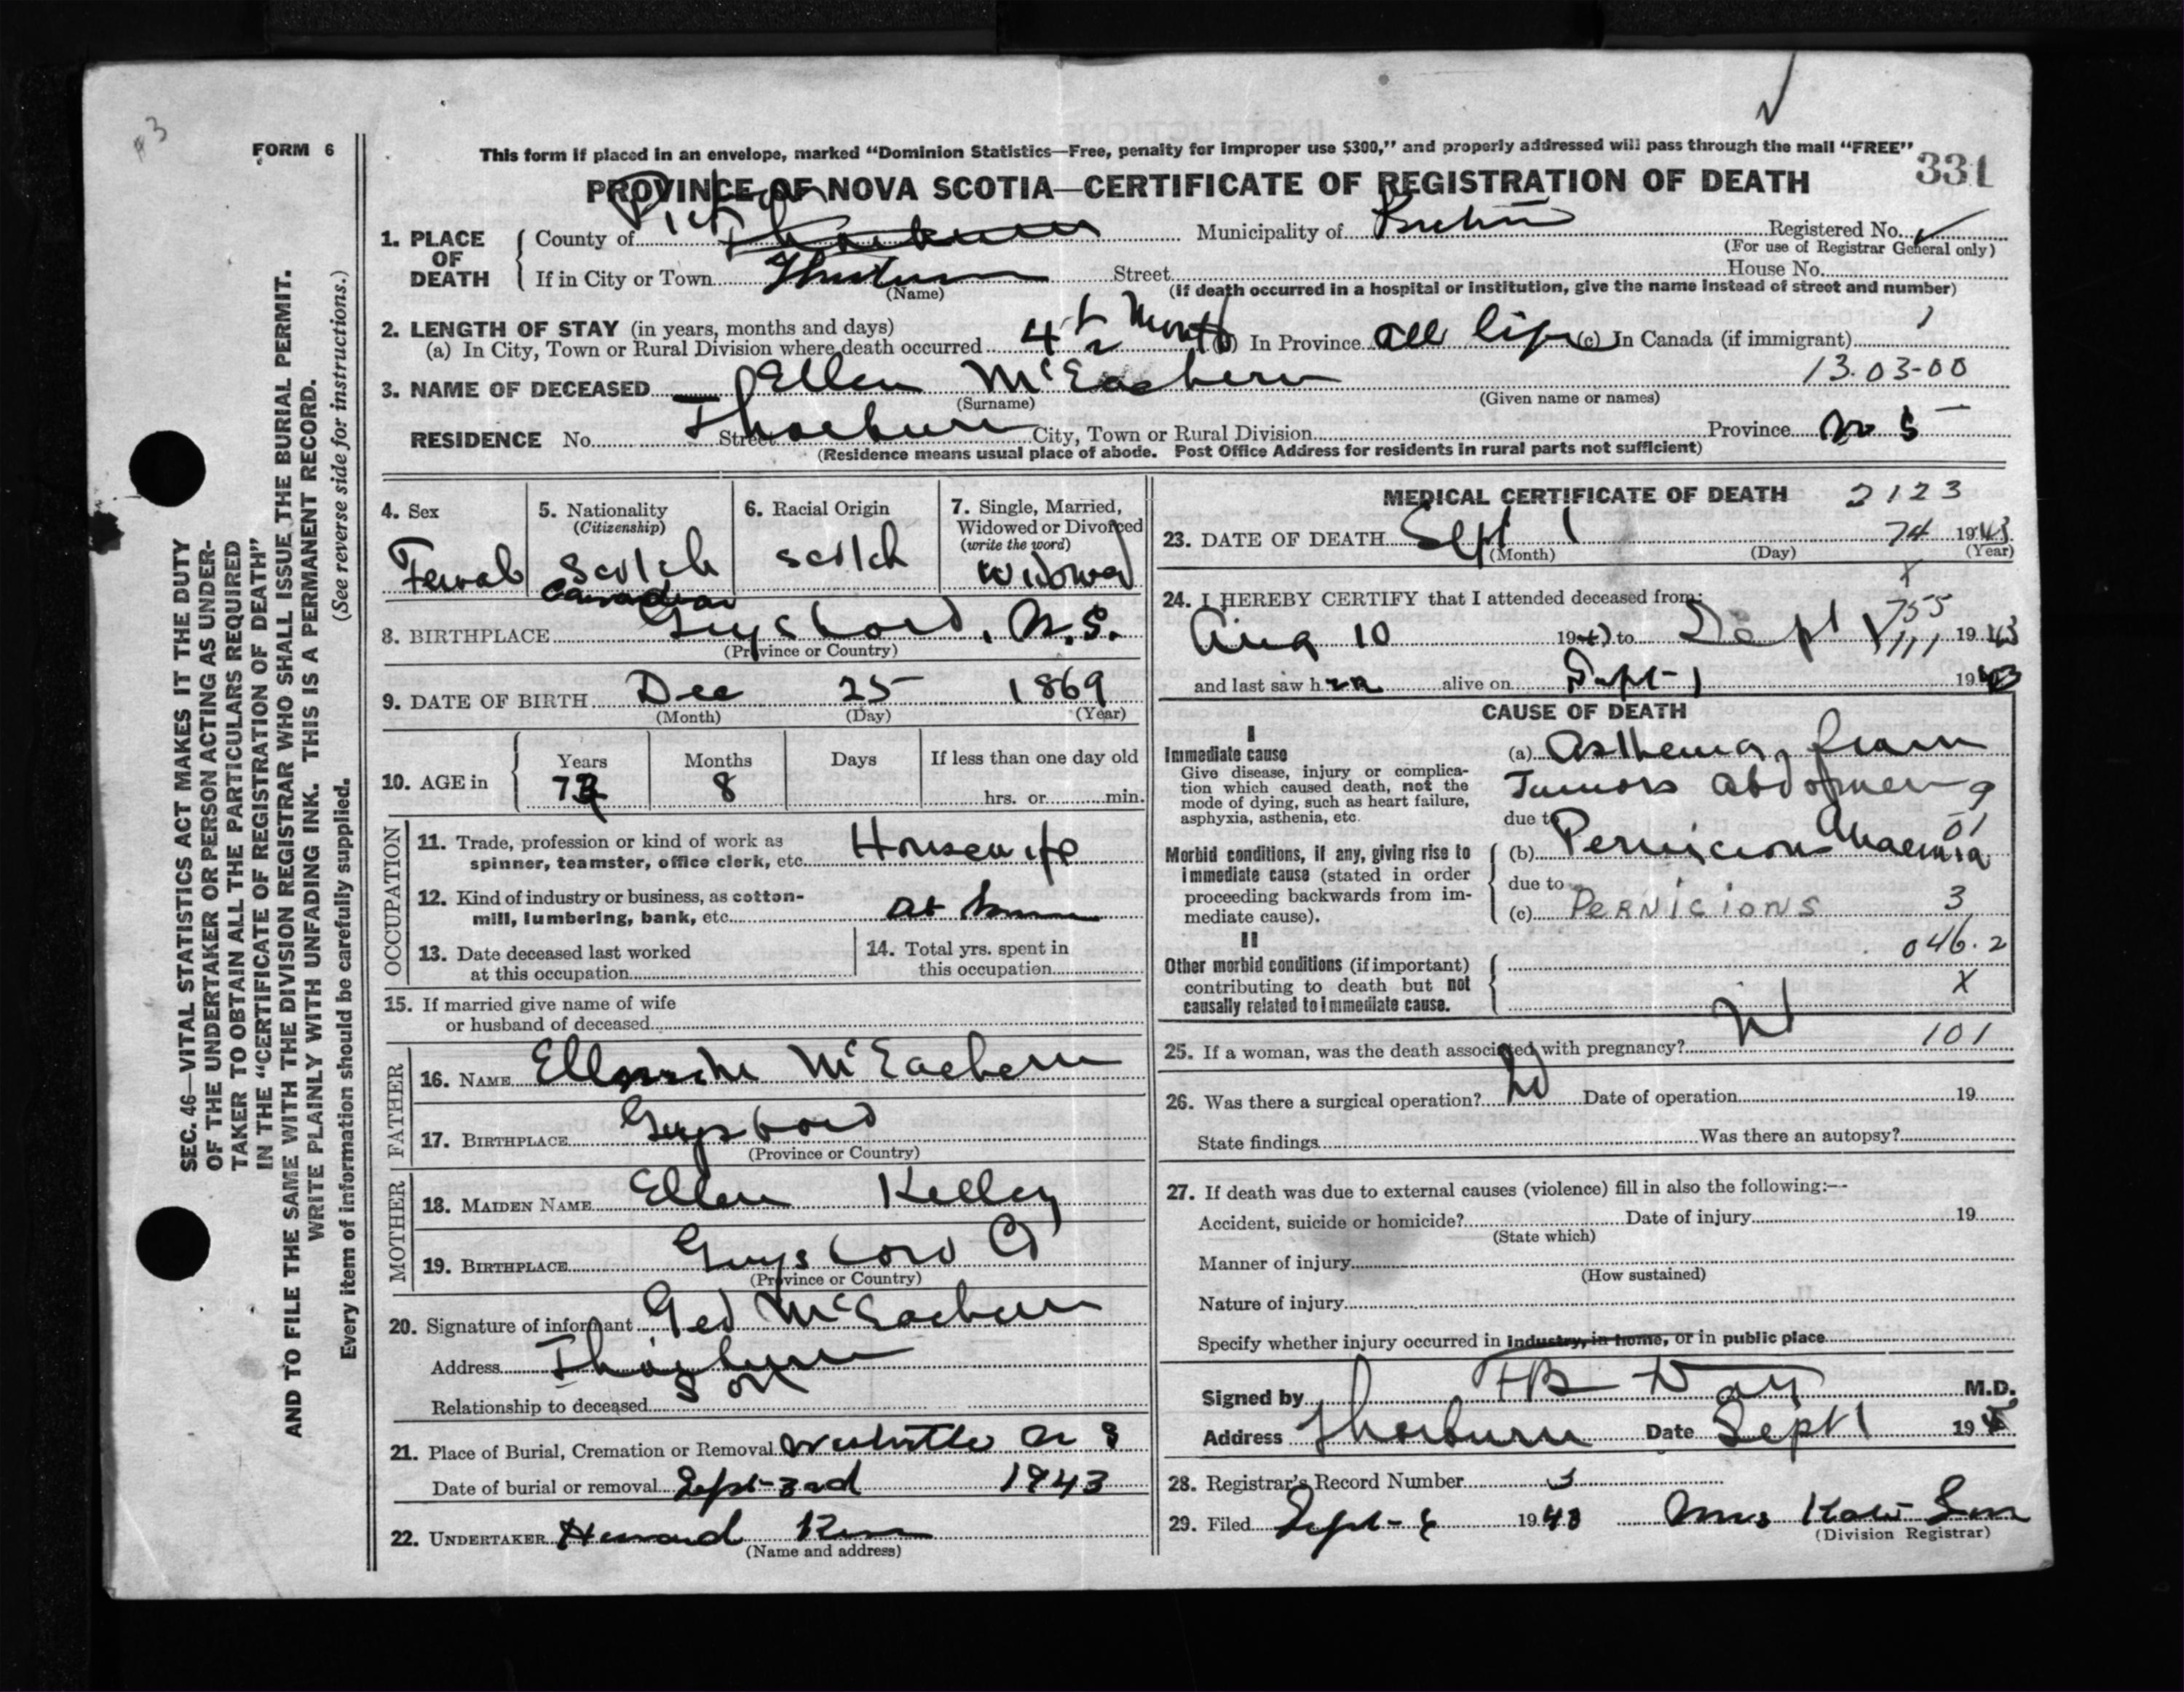 #3
FORM 6
This form if placed in an envelope, marked “Dominion Statistics—Free, penalty for improper use $300,” and properly addressed will pass through the mail “FREE”
331
PROVINCE OF NOVA SCOTIA—CERTIFICATE OF REGISTRATION OF DEATH
1. PLACE OF DEATH
County of Pictou Thorburn Municipality of Registered No.
(For use of Registrar General only)
If in City or Town Thorburn Street House No.
(Name) (If death occurred in a hospital or institution, give the name instead of street and number)
2. LENGTH OF STAY (in years, months and days)
(a) In City, Town or Rural Division where death occurred 4 1/2 Months (b) In Province all life (c) In Canada (if immigrant)
3. NAME OF DECEASED Ellen McEachern 13.03-00
(Surname) (Given name or names)
RESIDENCE No. Street Thorburn City, Town or Rural Division Province N S
(Residence means usual place of abode. Post Office Address for residents in rural parts not sufficient)
4. Sex
Female
5. Nationality
(Citizenship)
Scotch
Canadian
6. Racial Origin
Scotch
7. Single, Married, Widowed or Divorced
(write the word)
Widowed
8. BIRTHPLACE Guysboro, N.S.
(Province or Country)
9. DATE OF BIRTH Dec 25 1869
(Month) (Day) (Year)
10. AGE in
Years Months Days If less than one day old
73 8 hrs. or min.
OCCUPATION
11. Trade, profession or kind of work as
spinner, teamster, office clerk, etc. Housewife
12. Kind of industry or business, as cotton-
mill, lumbering, bank, etc. at home
13. Date deceased last worked
at this occupation
14. Total yrs. spent in
this occupation
15. If married give name of wife
or husband of deceased
FATHER
16. NAME McEachern
17. BIRTHPLACE Guysboro
(Province or Country)
MOTHER
18. MAIDEN NAME Ellen Kelley
19. BIRTHPLACE Guysboro Co
(Province or Country)
20. Signature of informant Geo McEachern
Address Thorburn
Relationship to deceased Son
21. Place of Burial, Cremation or Removal Westville N S
Date of burial or removal Sept-3rd 1943
22. UNDERTAKER
(Name and address)
MEDICAL CERTIFICATE OF DEATH 2123
23. DATE OF DEATH Sept 1 74 1943
(Month) (Day) (Year)
24. I HEREBY CERTIFY that I attended deceased from:
Aug 10 1943 to Sept 1 755 111 1943
and last saw her alive on Sept-1 1943
CAUSE OF DEATH
I
Immediate cause
Give disease, injury or complica-
tion which caused death, not the
mode of dying, such as heart failure,
asphyxia, asthenia, etc.
(a) Asthenia, from
Tumors abdomen 9
due to 01
Morbid conditions, if any, giving rise to
immediate cause (stated in order
proceeding backwards from im-
mediate cause).
(b) Pernicious Anaemia
due to
(c) PERNICIONS 3
II
Other morbid conditions (if important)
contributing to death but not
causally related to immediate cause.
046.2
X
25. If a woman, was the death associated with pregnancy? 101
26. Was there a surgical operation? No Date of operation 19
State findings Was there an autopsy?
27. If death was due to external causes (violence) fill in also the following:—
Accident, suicide or homicide? Date of injury 19
(State which)
Manner of injury
(How sustained)
Nature of injury
Specify whether injury occurred in industry, in home, or in public place
Signed by M.D.
Address Thorburn Date Sept 1 19
28. Registrar's Record Number 3
29. Filed Sept- 1943 Mrs
(Division Registrar)
SEC. 46—VITAL STATISTICS ACT MAKES IT THE DUTY
OF THE UNDERTAKER OR PERSON ACTING AS UNDER-
TAKER TO OBTAIN ALL THE PARTICULARS REQUIRED
IN THE “CERTIFICATE OF REGISTRATION OF DEATH”
AND TO FILE THE SAME WITH THE DIVISION REGISTRAR WHO SHALL ISSUE THE BURIAL PERMIT.
WRITE PLAINLY WITH UNFADING INK. THIS IS A PERMANENT RECORD.
Every item of information should be carefully supplied. (See reverse side for instructions.)